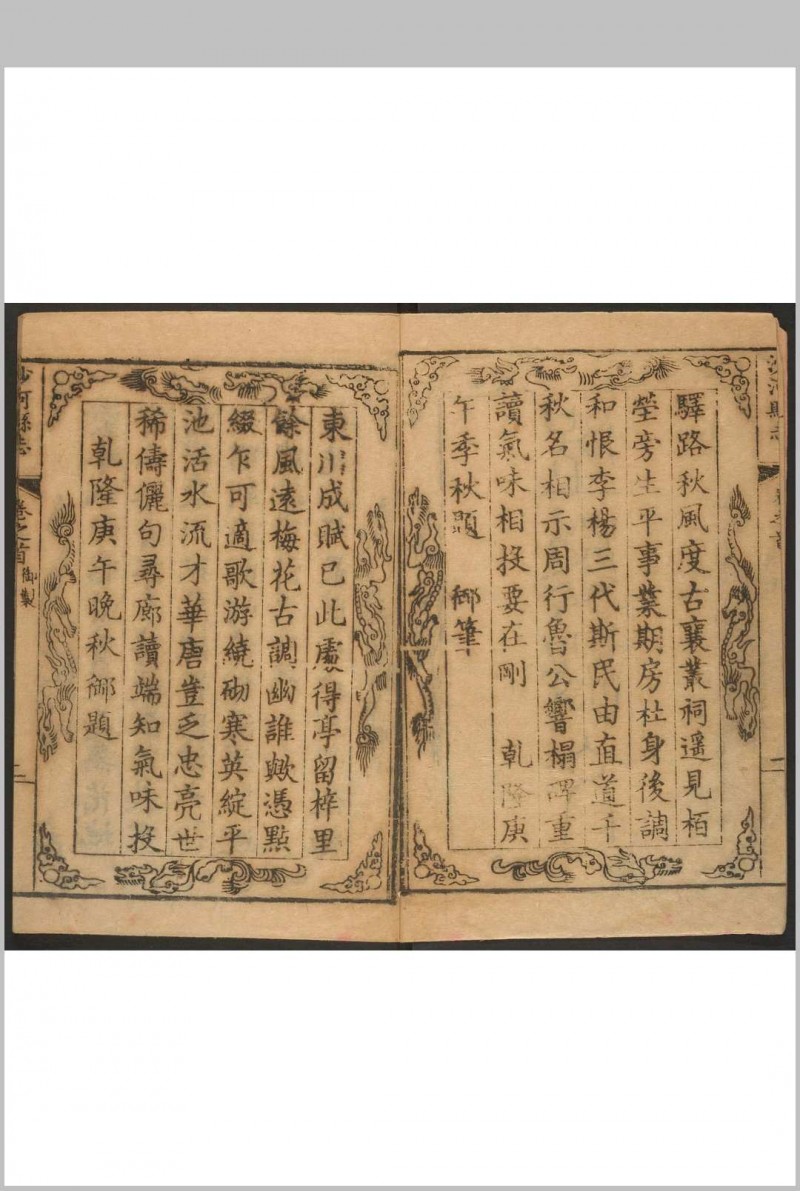 驛路秋風度古襄叢祠遥見栢
塋旁生平事業期房杜身後調
和恨李楊三代斯民由直道千
秋名相示周行魯公響榻碑重
讀氣味相投要在剛　乾隆庚
午季秋題　御筆
東川成賦已此處得亭留梓里
餘風遠梅花古調幽誰歟憑點
綴乍可適歌游繞砌寒英綻平
池活水流才華唐豈乏忠亮世
稀儔儷句尋廊讀端知氣味投
乾隆庚午晚秋御題
沙河縣志
卷之首
御製
二